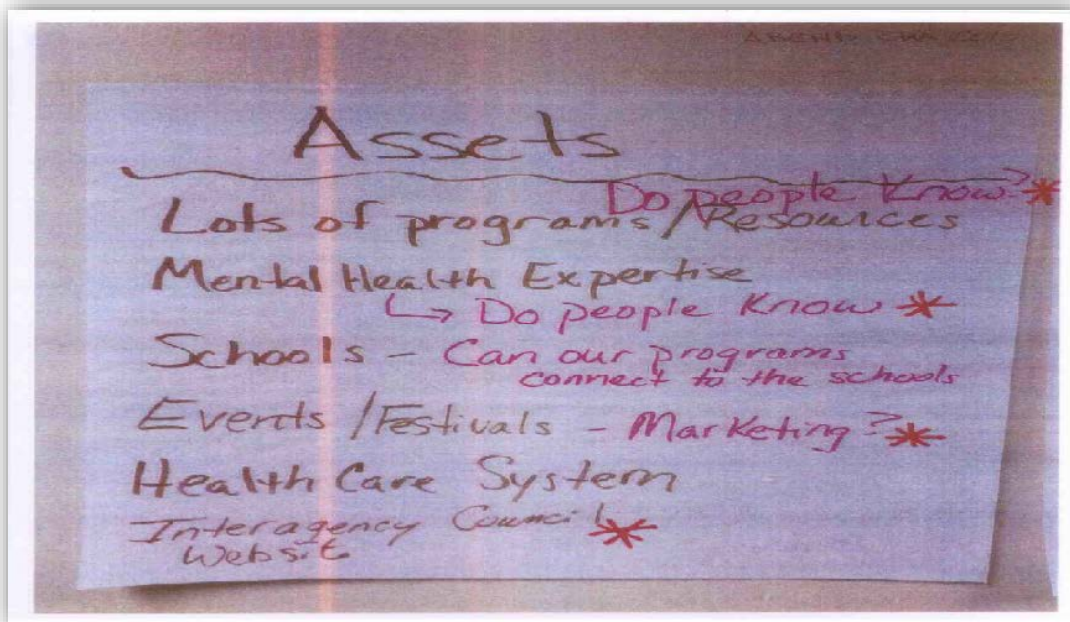 Assets
Do people Know?*
Lots of programs/Resources
Mental Health Expertise
↳ Do people Know *
Schools - Can our programs
connect to the schools
Events/Festivals - Marketing? *
Health Care System
Interagency Council *
Website